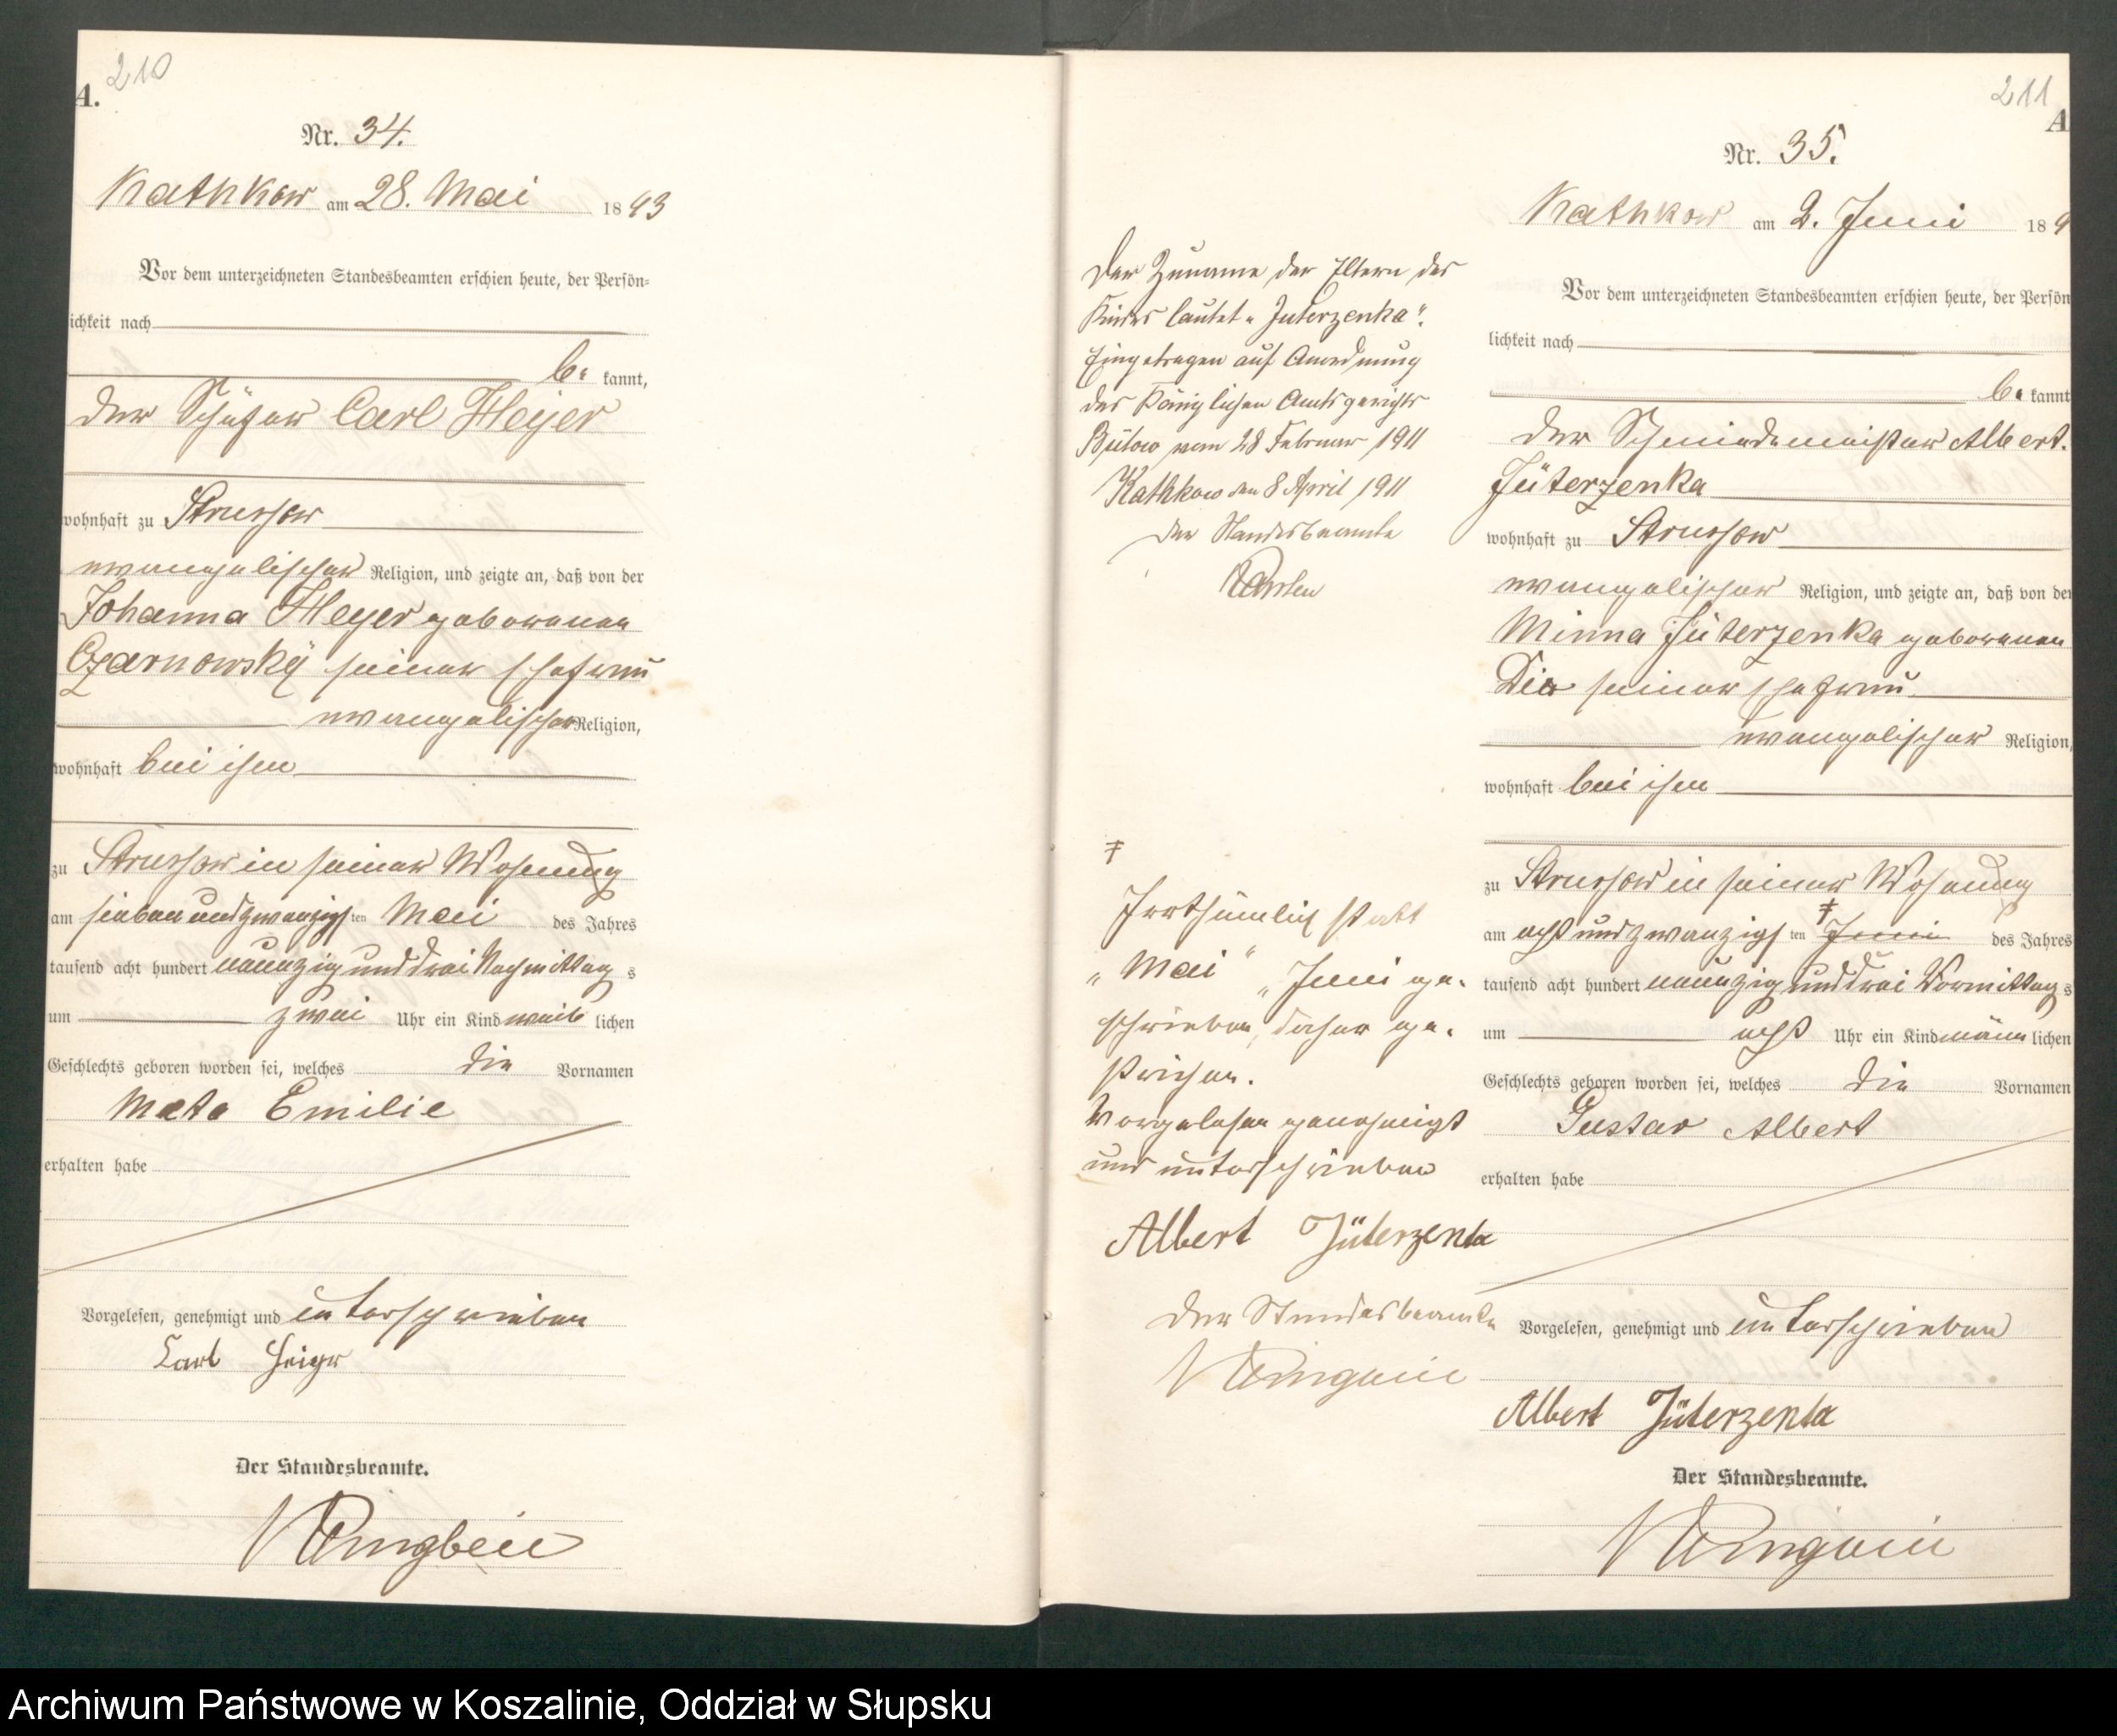 210
A.
Nr. 34.
Kathkow am 28. Mai 1893
Vor dem unterzeichneten Standesbeamten erschien heute, der Persön-
lichkeit nach
be kannt,
der Schäfer Carl Heyer
wohnhaft zu Strussow
evangelischer Religion, und zeigte an, daß von der
Johanna Heyer geborenen
Czarnowsky seiner Ehefrau
evangelischer Religion,
wohnhaft bei ihm
zu Strussow in seiner Wohnung
am siebenundzwanzigsten Mai des Jahres
tausend acht hundert neunzig und drei Nachmittags
um zwei Uhr ein Kind weiblichen
Geschlechts geboren worden sei, welches die Vornamen
Meta Emilie
erhalten habe
Vorgelesen, genehmigt und unterschrieben
Carl Heiyr
Der Standesbeamte.
211
A
Nr. 35.
Kathkow am 2. Juni 189
Vor dem unterzeichneten Standesbeamten erschien heute, der Persön
lichkeit nach
be kannt
der Schmiedemeister Albert
Jüterzenka
wohnhaft zu Strussow
evangelischer Religion, und zeigte an, daß von der
Minna Jüterzenka geborenen
seiner Ehefrau
evangelischer Religion,
wohnhaft bei ihm
zu Strussow in seiner Wohnung
am achtundzwanzigsten ‡ Juni des Jahres
tausend acht hundert neunzig und drei Vormittags
um acht Uhr ein Kind männlichen
Geschlechts geboren worden sei, welches die Vornamen
Gustav Albert
erhalten habe
Vorgelesen, genehmigt und unterschrieben
Albert Jüterzenka
Der Standesbeamte.
Der Zuname der Eltern des
Kindes lautet „Juterzenka“.
Eingetragen auf Anordnung
des Königlichen Amtsgerichts
Bütow vom 28 Februar 1911
Kathkow den 8 April 1911
Der Standesbeamte
‡
Irrthümlich statt
„Mai“ „Juni ge-
schrieben, daher ge-
strichen.
Vorgelesen genehmigt
und unterschrieben
Albert Jüterzenka
Der Standesbeamte
Archiwum Państwowe w Koszalinie, Oddział w Słupsku